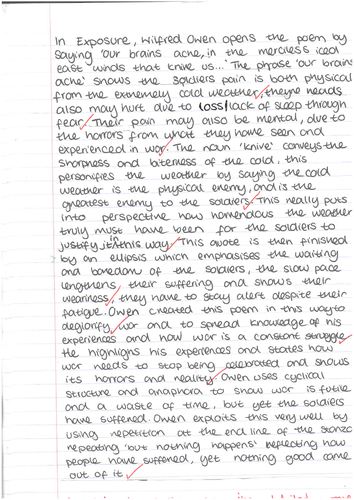 In Exposure, Wilfred Owen opens the poem by
saying 'our brains ache, in the merciless iced
east winds that knive us...' The phrase 'our brains
ache' shows the soldiers pain is both physical
from the extremely cold weather, theyre heads
also may hurt due to loss/lack of sleep through
fear. Their pain may also be mental, due to
the horrors from what they have seen and
experienced in war. The noun 'knive' conveys the
sharpness and biterness of the cold, this
personifies the weather by saying the cold
weather is the physical enemy, and is the
greatest enemy to the soldiers. This really puts
into perspective how horrendous the weather
truly must have been for the soldiers to
justify it in this way. This quote is then finished
by an ellipsis which emphasises the waiting
and boredom of the soldiers, the slow pace
lengthens their suffering and shows their
weariness, they have to stay alert despite their
fatigue. Owen created this poem in this way to
deglorify war and to spread knowledge of his
experiences and how war is a constant struggle.
He highlighs his experiences and states how
war needs to stop being celebrated and shows
its horrors and reality. Owen uses cyclical
structure and anaphora to show war is futile
and a waste of time, but yet the soldiers
have suffered. Owen exploits this very well by
using repetition at the end line of the stanza
repeating 'but nothing happens' reflecting how
people have suffered, yet nothing good came
out of it.